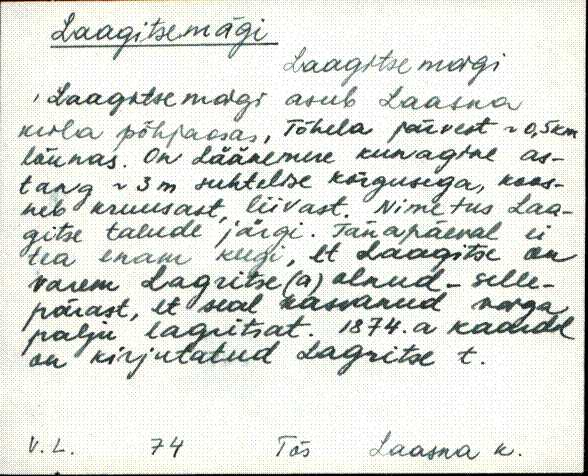 Laagitsemägi
Laagitsemägi
Laagitsemägi asub Laasna
küla põhjaosas, Tõhela järvest ~ 0,5 km
lõunas. On Läänemere kunagine as-
tang ~ 3 m suhtelise kõrgusega, koos-
neb kruusast, liivast. Nimetus Laa-
gitse talude järgi. Tänapäeval ei
tea enam keegi, et Laagitse on
varem Lagritse(a) olnud - selle-
pärast, et seal kasvanud väga
palju lagritsat. 1874. a kaardil
on kirjutatud Lagritse t.
V. L. 74 Tõs Laasna k.